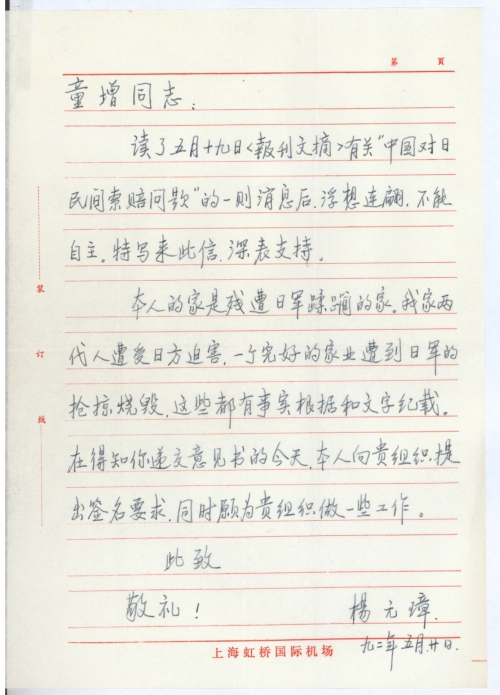 第 頁
童增同志：
读了五月十九日《報刊文摘》有关“中国对日
民间索赔问题”的一则消息后，浮想连翩，不能
自主。特写来此信，深表支持。
本人的家是残遭日軍蹂躏的家。我家两
代人遭受日方迫害，一个完好的家业遭到日軍的
抢掠烧毁，这些都有事实根据和文字纪载。
在得知你递交意见书的今天，本人向貴组织提
出签名要求，同时願为貴组织做一些工作。
此致
敬礼！
楊元璋.
九二年五月廿日.
装
订
线
上海虹桥国际机场